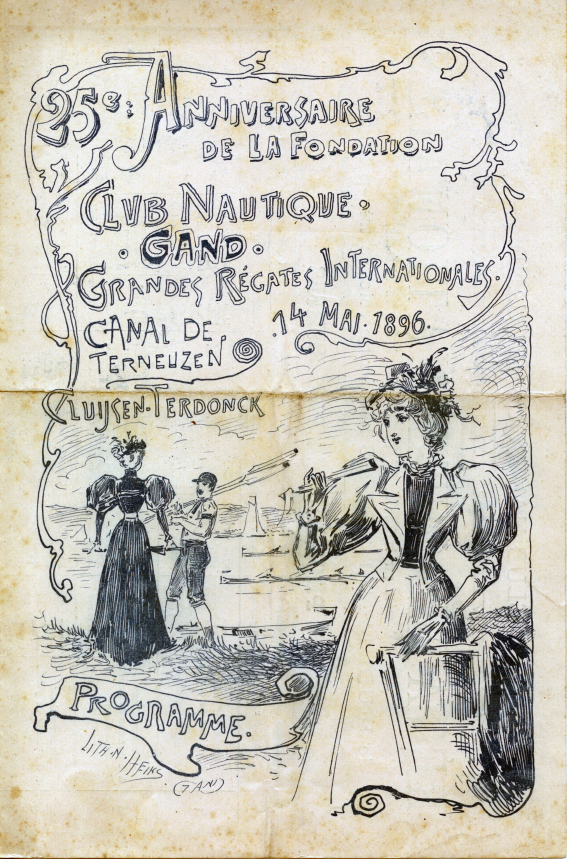 25e: ANNIVERSAIRE
DE LA FONDATION
CLUB NAUTIQUE.
. GAND.
GRANDES RÉGATES INTERNATIONALES.
CANAL DE .14 MAI. 1896.
TERNEUZEN
CLUIJSEN-TERDONCK
PROGRAMME.
LITH. N. HEINS
(GAND)